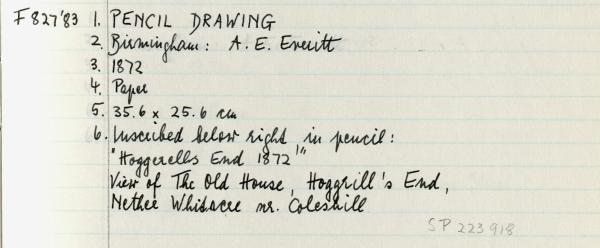 F827'83 1. PENCIL DRAWING
2. Birmingham: A. E. Everitt
3. 1872
4. Paper
5. 35.6 x 25.6 cm
6. Inscribed below right in pencil:
"Hoggerells End 1872"
View of The Old House, Hoggrill's End,
Nether Whitacre nr. Coleshill
SP 223 918